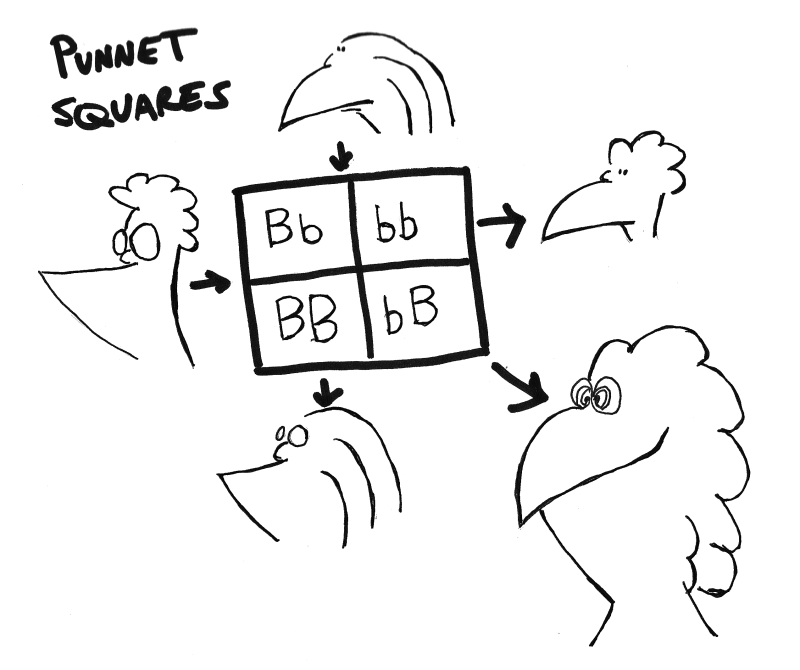 PUNNET
SQUARES
Bb bb
BB bB